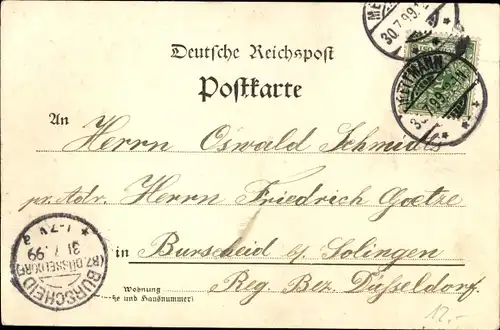 30.7.99.
Deutsche Reichspost
Postkarte
METTMANN
30.7.99.
An Herrn Oswald Schmidts
pr. Adr. Herrn Friedrich Goetze
in Burscheid b/Solingen
Wohnung
(Straße und Hausnummer)
Reg. Bez. Düsseldorf.
31.7.99
(BZ. DÜSSELDORF)
BURSCHEID
12.-